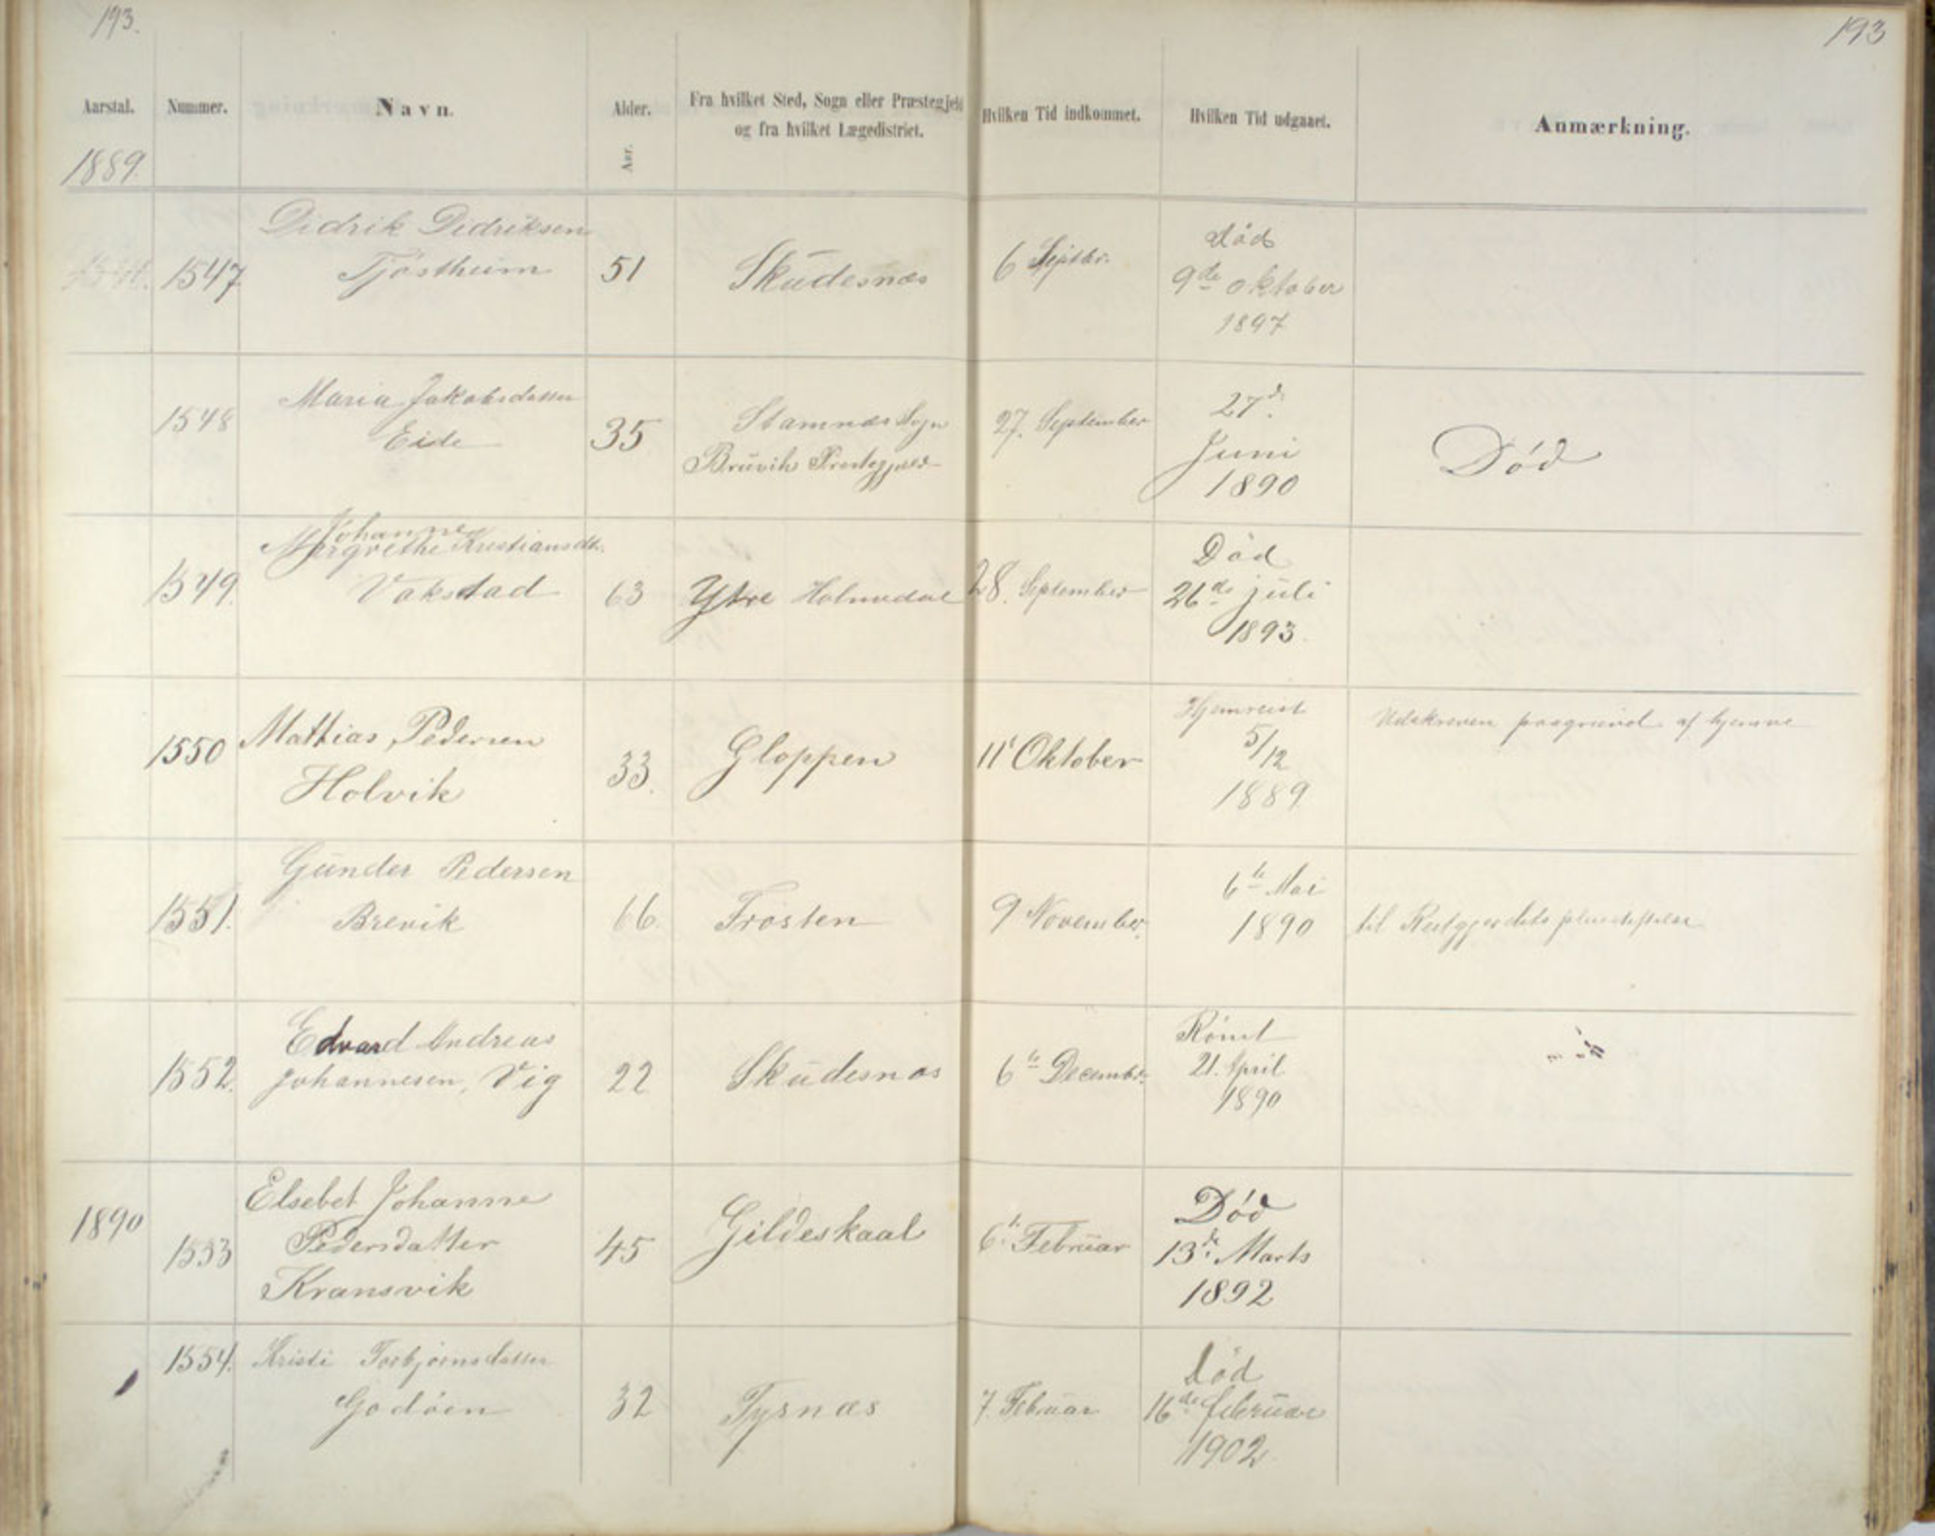 193.
193
Aarstal. Nummer. Navn. Alder. Fra hvilket Sted, Sogn eller Præstegjeld Hvilken Tid indkommet. Hvilken Tid udgaaet. Anmærkning.
og fra hvilket Lægedistrict.
Aar.
1889.
Didrik Didriksen
1547 Tjøstheim 51 Skudesnæs 6 Septbr. død
9de oktober
1897
Maria Jakobsdatter
1548 Eide 35 Stamnæs Sogn 27. September 27de
Bruvik Prestegjæld Juni
1890 Død
Johanne
Margrethe Kristiansdtr.
1549. Vakstad 63 Ytre Holmedal 28. September Død
26de juli
1893.
1550 Mathias Pedersen 33. Gloppen 11t Oktober Hjemreist Udskreven paagrund af hjemve
Holvik 5/12
1889
Gunder Pedersen
1551. Brevik 66 Frosten 9 November. 6te Mai
1890 til Reitgjerdets
Edvard Andreas
1552. Johannesen, Vig 22 Skudesnæs 6te Decembr. Rømt
21. April
1890
1890
1553 Elsebet Johanne
Pedersdatter
Kransvik 45 Gildeskaal 6te Februar Død
13de Marts
1892
1554. Kristi Torbjørnsdatter
Godøen 32 Tysnæs 7. Februar død
16de februar
1902.